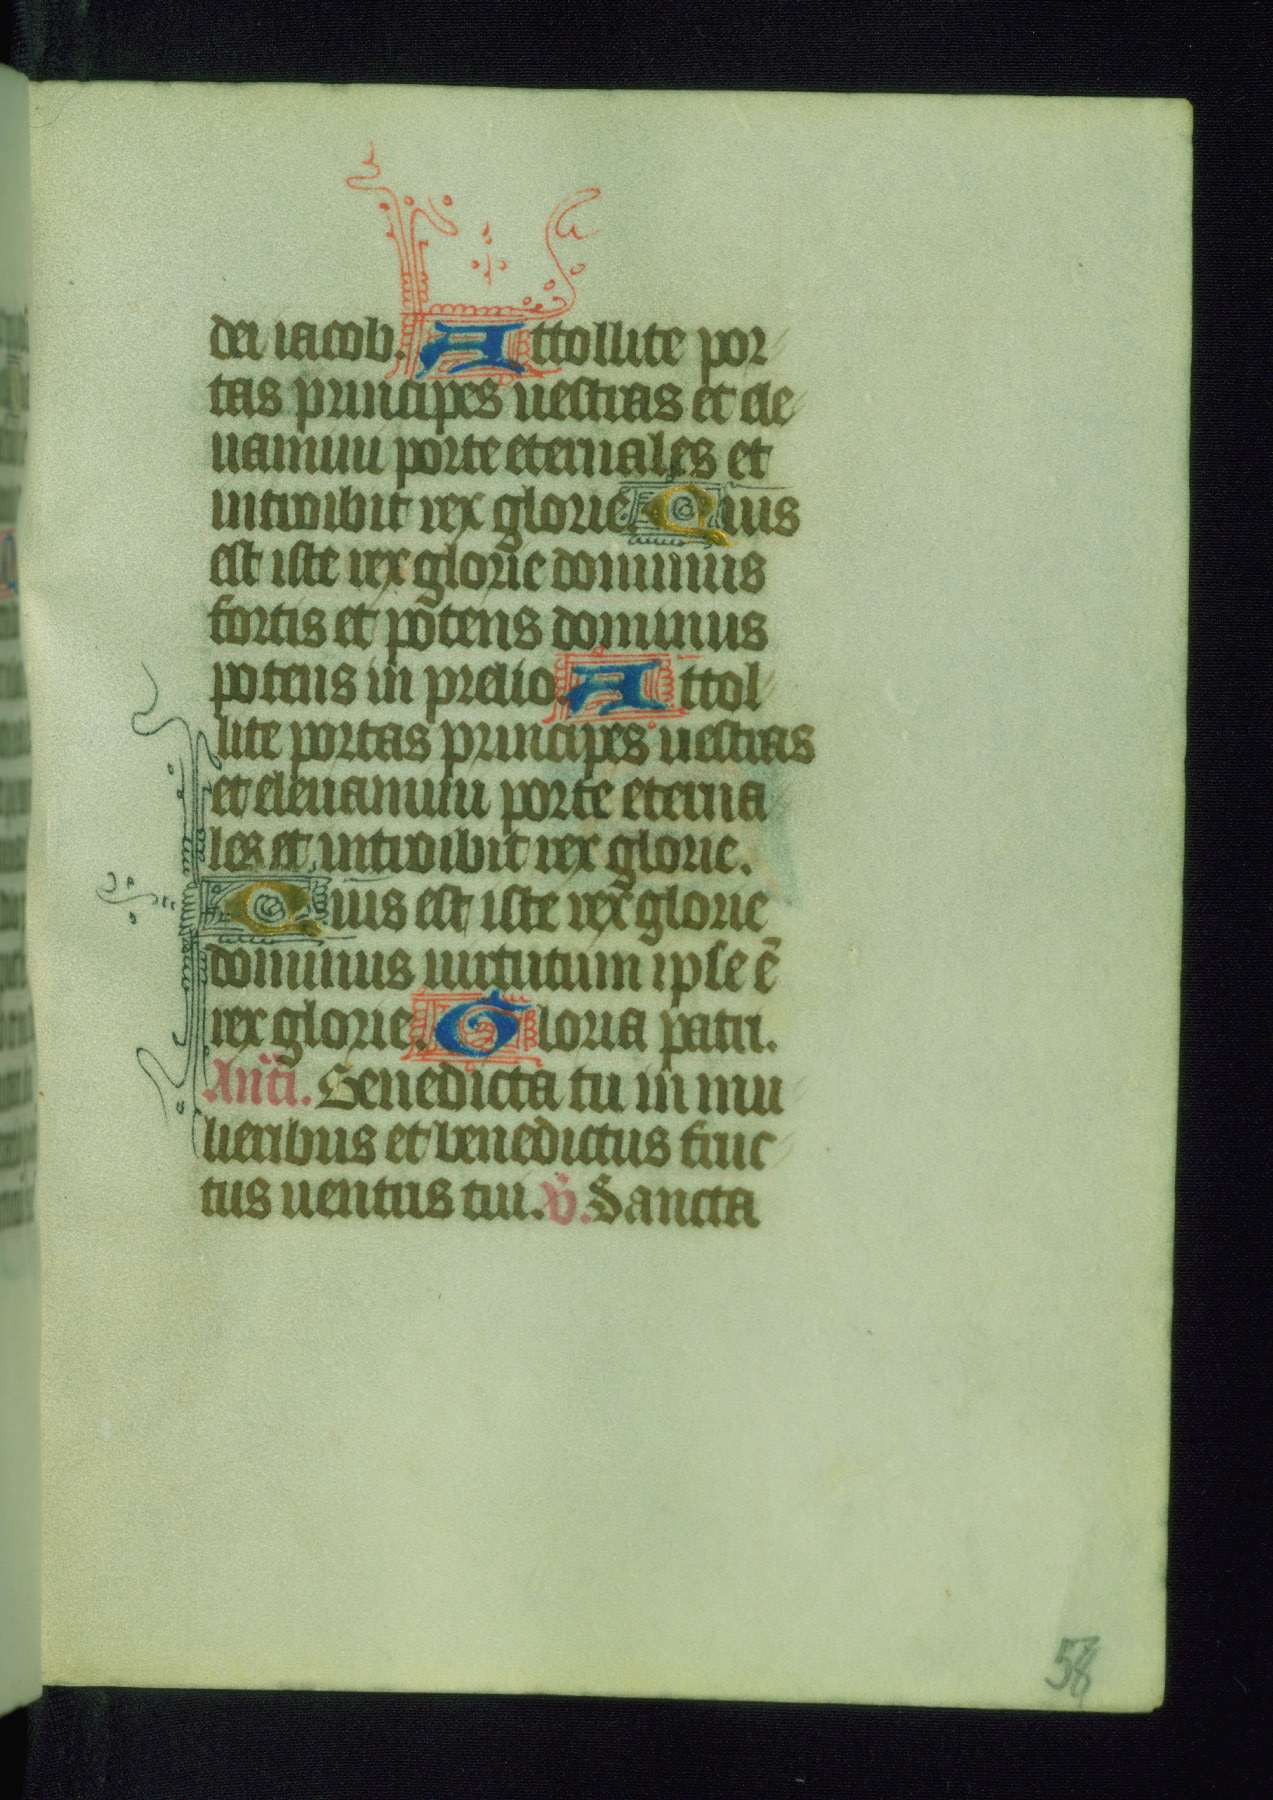 dei iacob. Attollite por
tas principes uestras et ele
uamini porte eternales et
introibit rex glorie. Quis
est iste rex glorie dominus
fortis et potens dominus
potens in prelio. Attol
lite portas principes uestras
et eleuamini porte eterna
les et introibit rex glorie.
Quis est iste rex glorie
dominus uirtutum ipse ē
rex glorie. Gloria patri.
An̄. Benedicta tu in mu
lieribus et benedictus fruc
tus uentris tui. V. Sancta
58